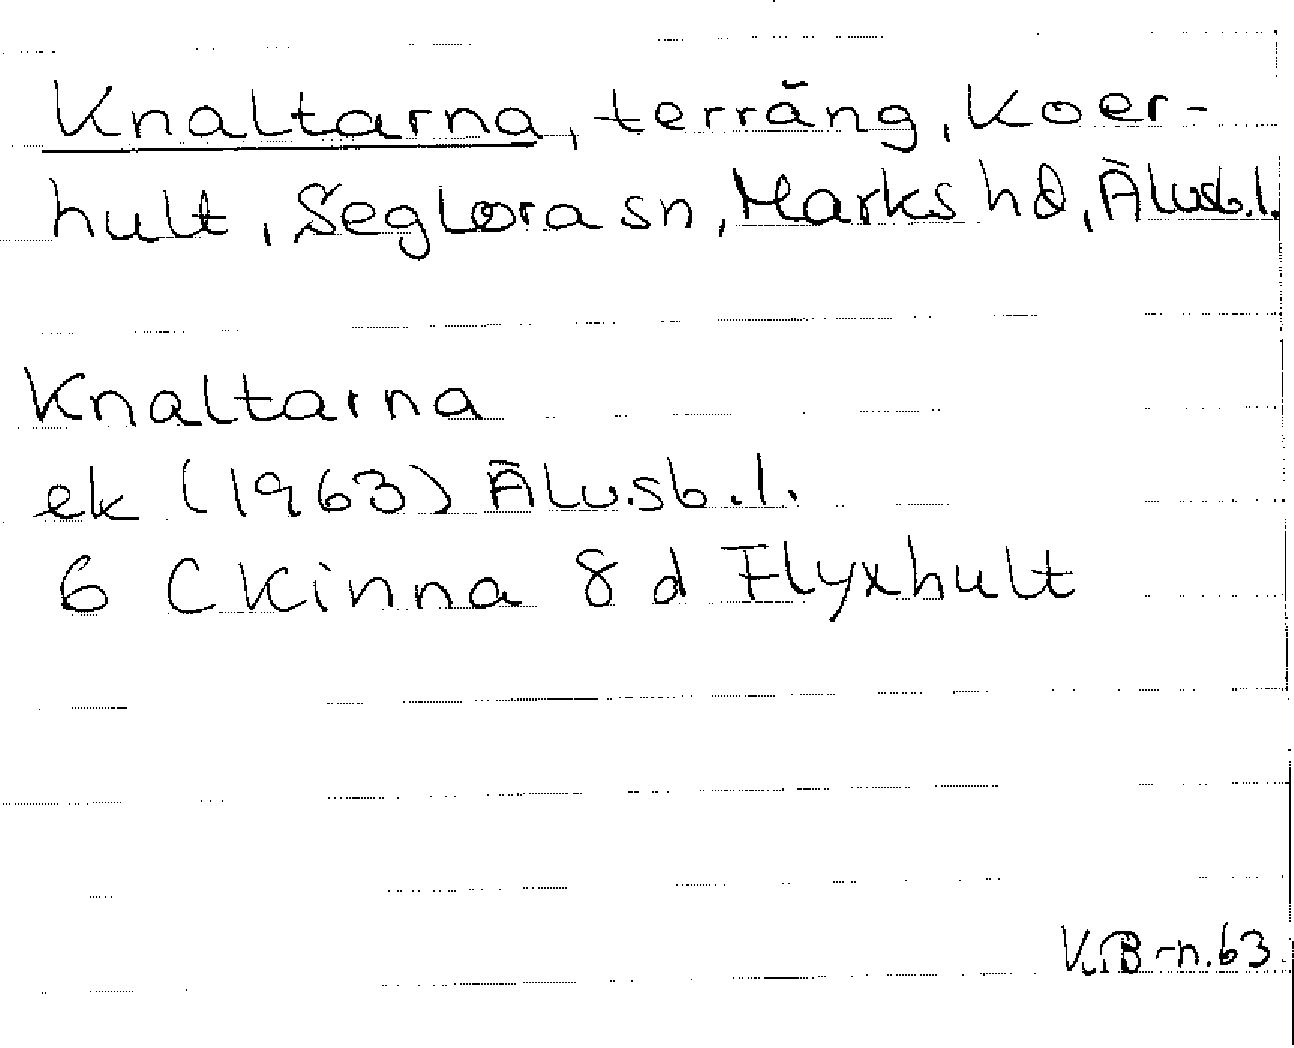 Knaltarna, terräng, Koer-
hult, Seglora sn, Marks hd, Älvsb.l.
Knaltarna
ek (1963) Älv.sb.l.
6 C Kinna 8 d Flyxhult
K.B-n.63